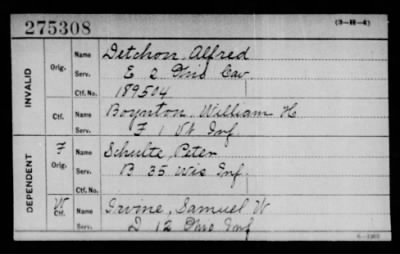 275308
(3-H-4)
INVALID
Orig. Name Detchon, Alfred
Serv. E 2 Ohio Cav.
Ctf. No. 189504
Ctf. Name Boynton, William H
Serv. F 1 Vt Inf.
DEPENDENT
F Orig. Name Schulte, Peter
Serv. B 35 Wis Inf.
Ctf. No.
W Ctf. Name Irvine, Samuel W
Serv. D 12 Ohio Inf